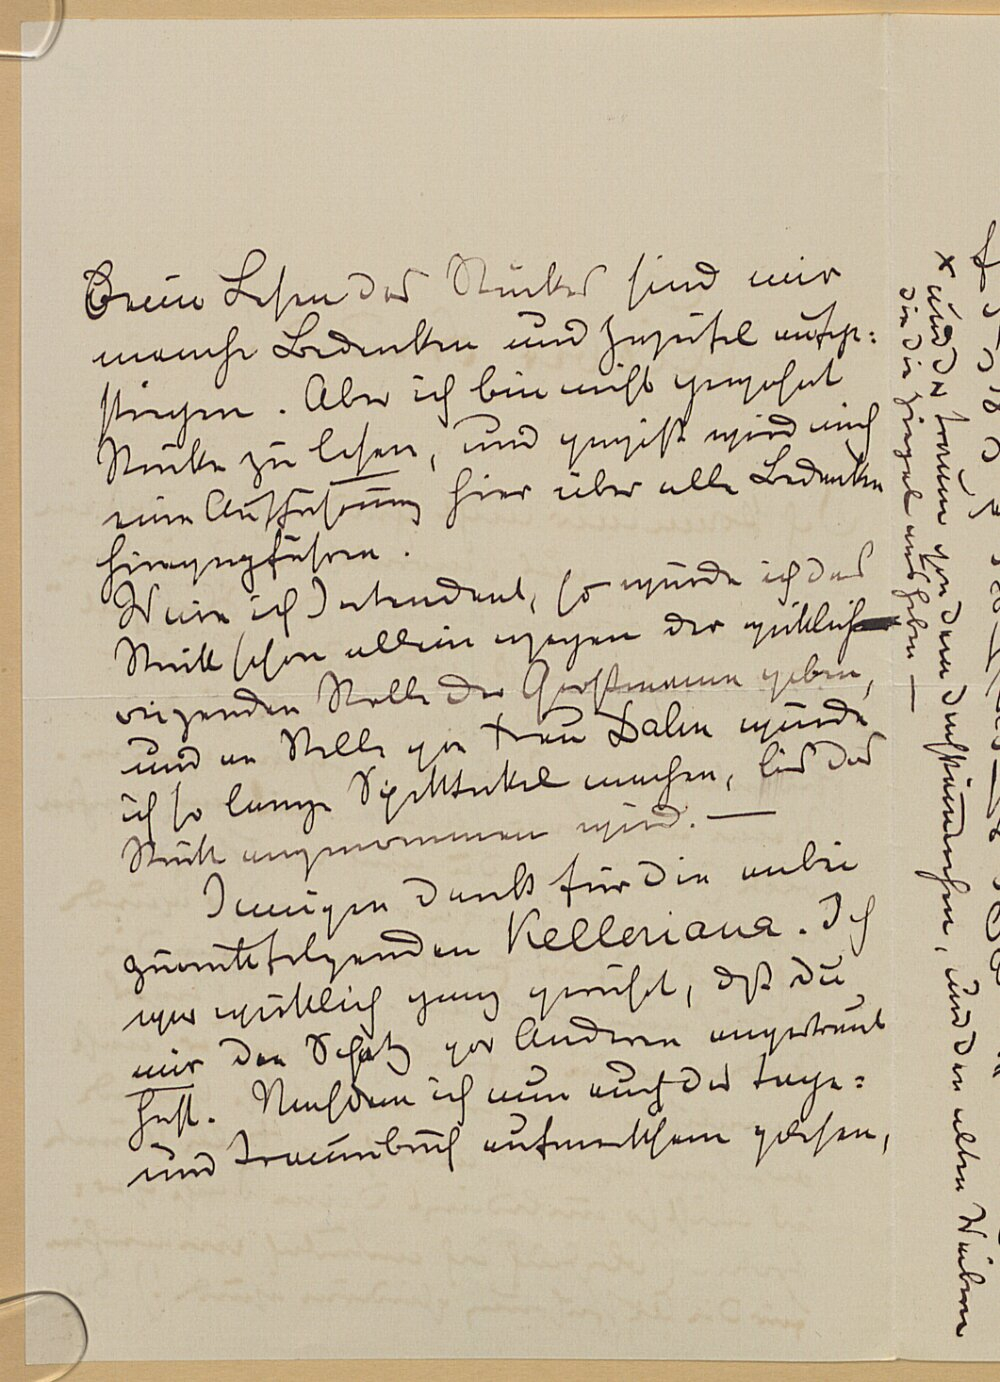 Beim Lesen des Stückes sind mir
manche Bedenken und Zweifel aufge=
stiegen. Aber ich bin nicht gewohnt
Stücke zu lesen, und gewiß wird mich
eine Aufführung hier über alle Bedenken
hinwegführen.
Wäre ich Intendant, so würde ich das
Stück schon allein wegen der wirklich
reizenden Rolle der Großmama geben,
und an Stelle von Frau Dahn würde
ich so lange Spektakel machen, bis das
Stück angenommen wird. —
Innigen Dank für die anbei
zurückfolgenden Kelleriana. Ich
war wirklich ganz gerührt, daß Du
mir den Schatz vor Anderen angetraut
hast. Nachdem ich nun auch das Tage=
und Traumbuch aufmerksam gelesen,
x und den Traum von dem Dachstübchen, und den alten Weibern
die die Ziegel aufheben —